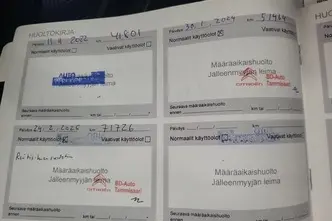 HUOLTOKIRJA
Päiväys 11.4.2022 km 41801
Normaalit käyttöolot Vaativat käyttöolot
Määräaikaishuolto
Jälleenmyyjän leima
Seuraava määräaikaishuolto
ennen km tai
Päiväys 30.1.2024 km 51414
Normaalit käyttöolot Vaativat käyttöolot
Määräaikaishuolto
Jälleenmyyjän leima
CITROËN
BD-Auto
Tammisaari
Seuraava määräaikaishuolto
ennen km tai
Päiväys 24.2.2025 km 71726
Normaalit käyttöolot Vaativat käyttöolot
Määräaikaishuolto
Jälleenmyyjän leima
CITROËN
BD-Auto
Tammisaari
Seuraava määräaikaishuolto
ennen km tai
Päiväys km
Normaalit käyttöolot Vaativat käyttöolot
Määräaikaishuolto
Jälleenmyyjän leima
Seuraava määräaikaishuolto
ennen km tai